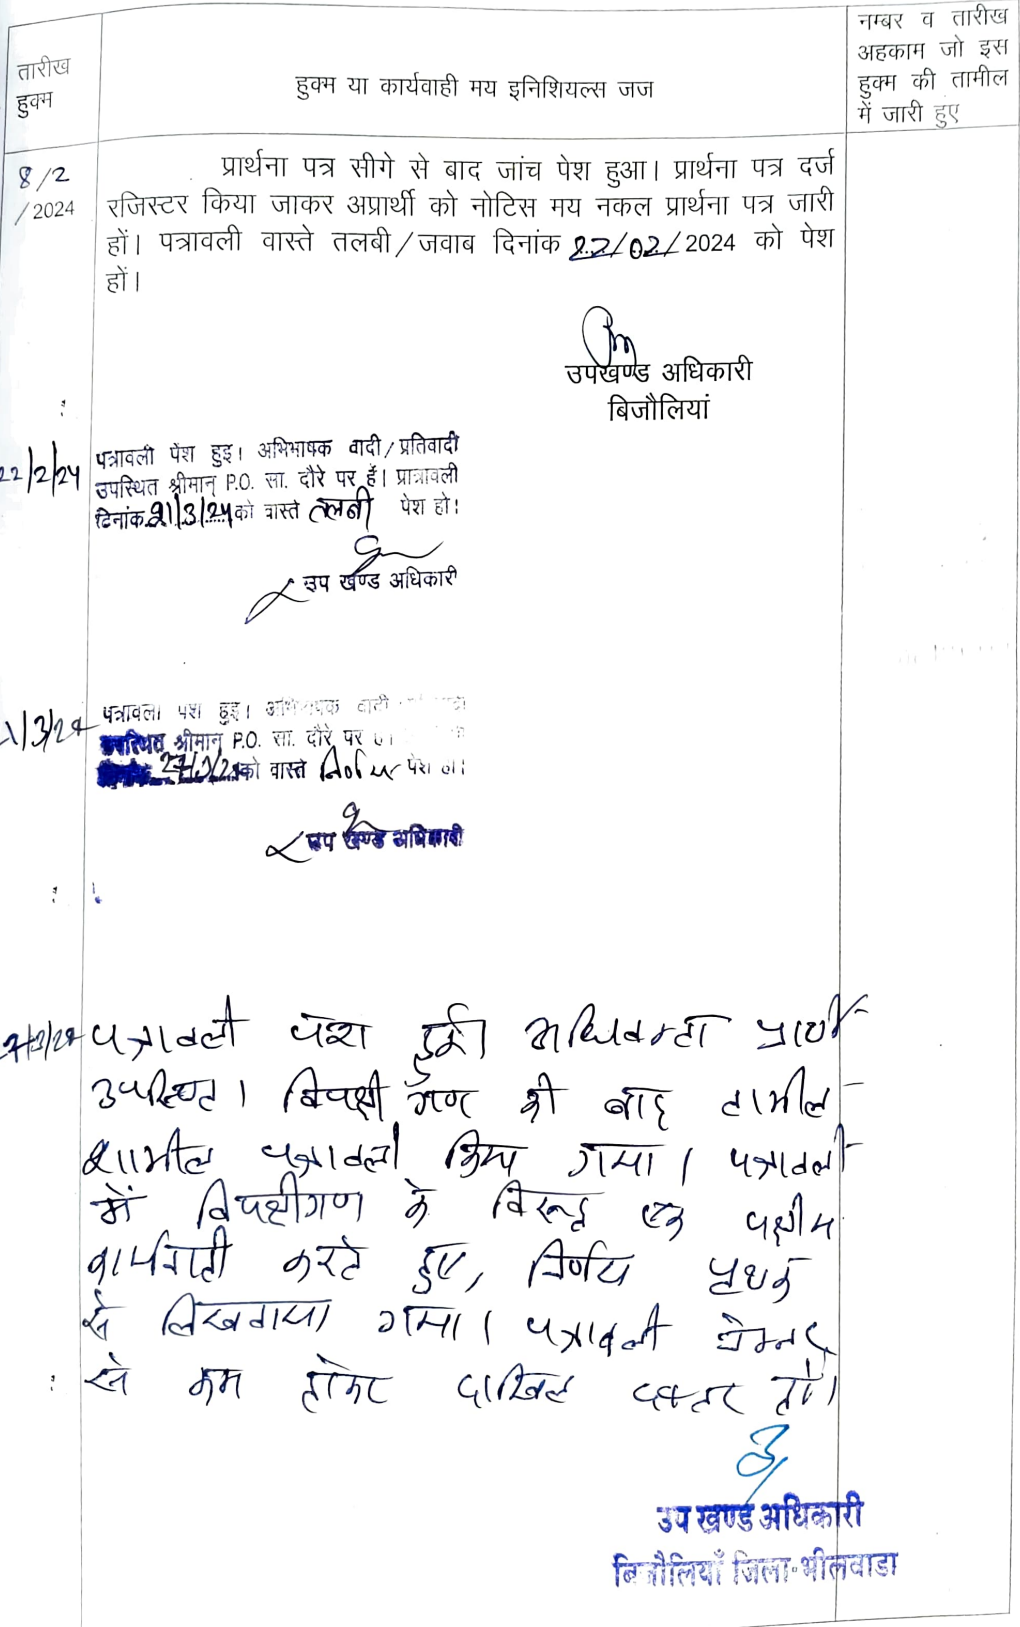 तारीख
हुक्म
हुक्म या कार्यवाही मय इनिशियल्स जज
नम्बर व तारीख
अहकाम जो इस
हुक्म की तामील
में जारी हुए
8/2
/2024
प्रार्थना पत्र सीगे से बाद जांच पेश हुआ। प्रार्थना पत्र दर्ज
रजिस्टर किया जाकर अप्रार्थी को नोटिस मय नकल प्रार्थना पत्र जारी
हों। पत्रावली वास्ते तलबी/जवाब दिनांक 22/02/2024 को पेश
हों।
उपखण्ड अधिकारी
बिजौलियां
22/2/24
पत्रावली पेश हुइ। अभिभाषक वादी/प्रतिवादी
उपस्थित श्रीमान् P.O. सा. दौरे पर हैं। प्रात्रावली
दिनांक 21/3/24 को वास्ते तलबी पेश हो।
उप खण्ड अधिकारी
1/3/24
पत्रावली पेश हुइ। वादी
उपस्थित श्रीमान् P.O. सा. दौरे पर
को वास्ते निर्णय पेश हो।
उप खण्ड अधिकारी
पत्रावली पेश हुई। अधिवक्ता प्रार्थी
उपस्थित। विपक्षीगण की बाद तामील
शामील पत्रावली किया गया। पत्रावली
में विपक्षीगण के विरूद्ध एक पक्षीय
कार्यवाही करते हुए, निर्णय पृथक
से लिखवाया गया। पत्रावली
से कम होकर दाखिल दफ्तर हो।
उप खण्ड अधिकारी
बिजौलियाँ जिला-भीलवाडा